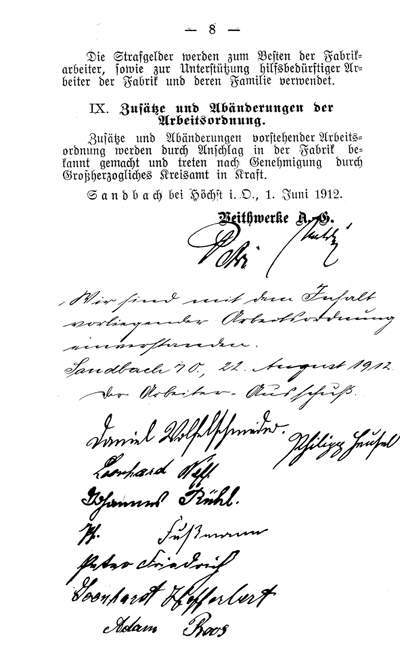 — 8 —
Die Strafgelder werden zum Besten der Fabrik-
arbeiter, sowie zur Unterstützung hilfsbedürftiger Ar-
beiter der Fabrik und deren Familie verwendet.
IX. Zusätze und Abänderungen der
Arbeitsordnung.
Zusätze und Abänderungen vorstehender Arbeits-
ordnung werden durch Anschlag in der Fabrik be-
kannt gemacht und treten nach Genehmigung durch
Großherzogliches Kreisamt in Kraft.
Sandbach bei Höchst i. O., 1. Juni 1912.
Veithwerke A.-G.
Wir sind mit dem Inhalt
vorliegender Arbeitsordnung
einverstanden.
Sandbach 22. August 1912
Der Arbeiter-Ausschuß.
Daniel
Philipp Heusel
Leonhard
Johannes Rühl.
Fußmann
Peter Friedrich
Leonhardt
Adam Roos